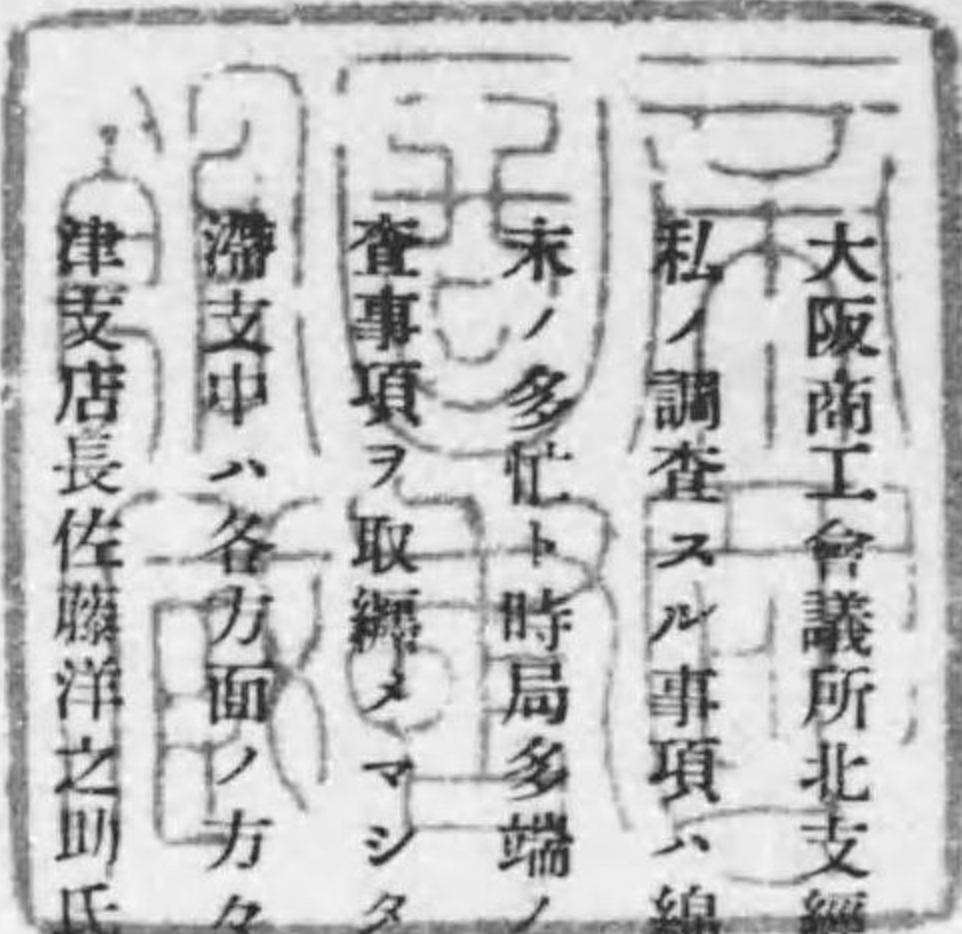 大阪商工會議所北支經
私ノ調査スル事項ハ綿
末ノ多忙ト時局多端ノ
査事項ヲ取纒メマシタ
滯支中ハ各方面ノ方々
津支店長佐藤洋之助氏